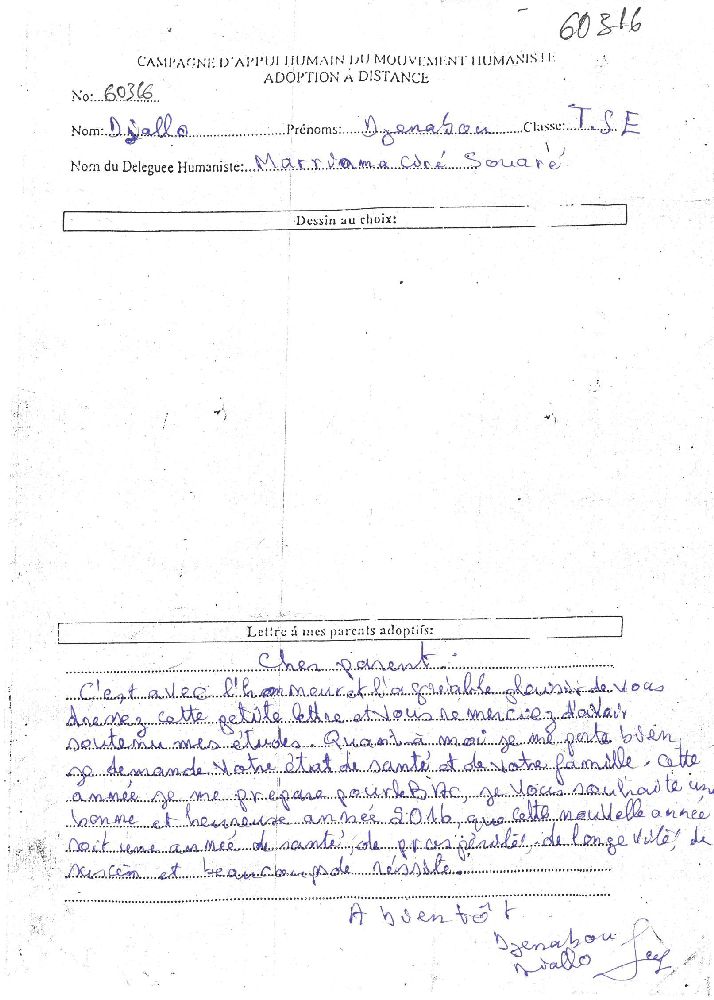 60316
CAMPAGNE D'APPUI HUMAIN DU MOUVEMENT HUMANISTE
ADOPTION A DISTANCE
No: 60316
Nom: Djallo Prénoms: Djenabou Classe: T.S E
Nom du Deleguee Humaniste: Marriama Ciré Souaré
Dessin au choix:
Lettre à mes parents adoptifs:
Cher parent.
C'est avec l'honneur et l'agréable plaisir de vous
dressez cette petite lettre et vous remerciez d'avoir
soutenu mes études. Quant à moi je me porte bien
je demande votre état de santé et de votre famille. Cette
année je me prépare pour le BAC, je vous souhaite un
bonne et heureuse année 2016, que cette nouvelle année
soit une année de santé, de prospérité, de longe vité, de
et beaucoup de réssite.
A bientôt
Djenabou
Diallo